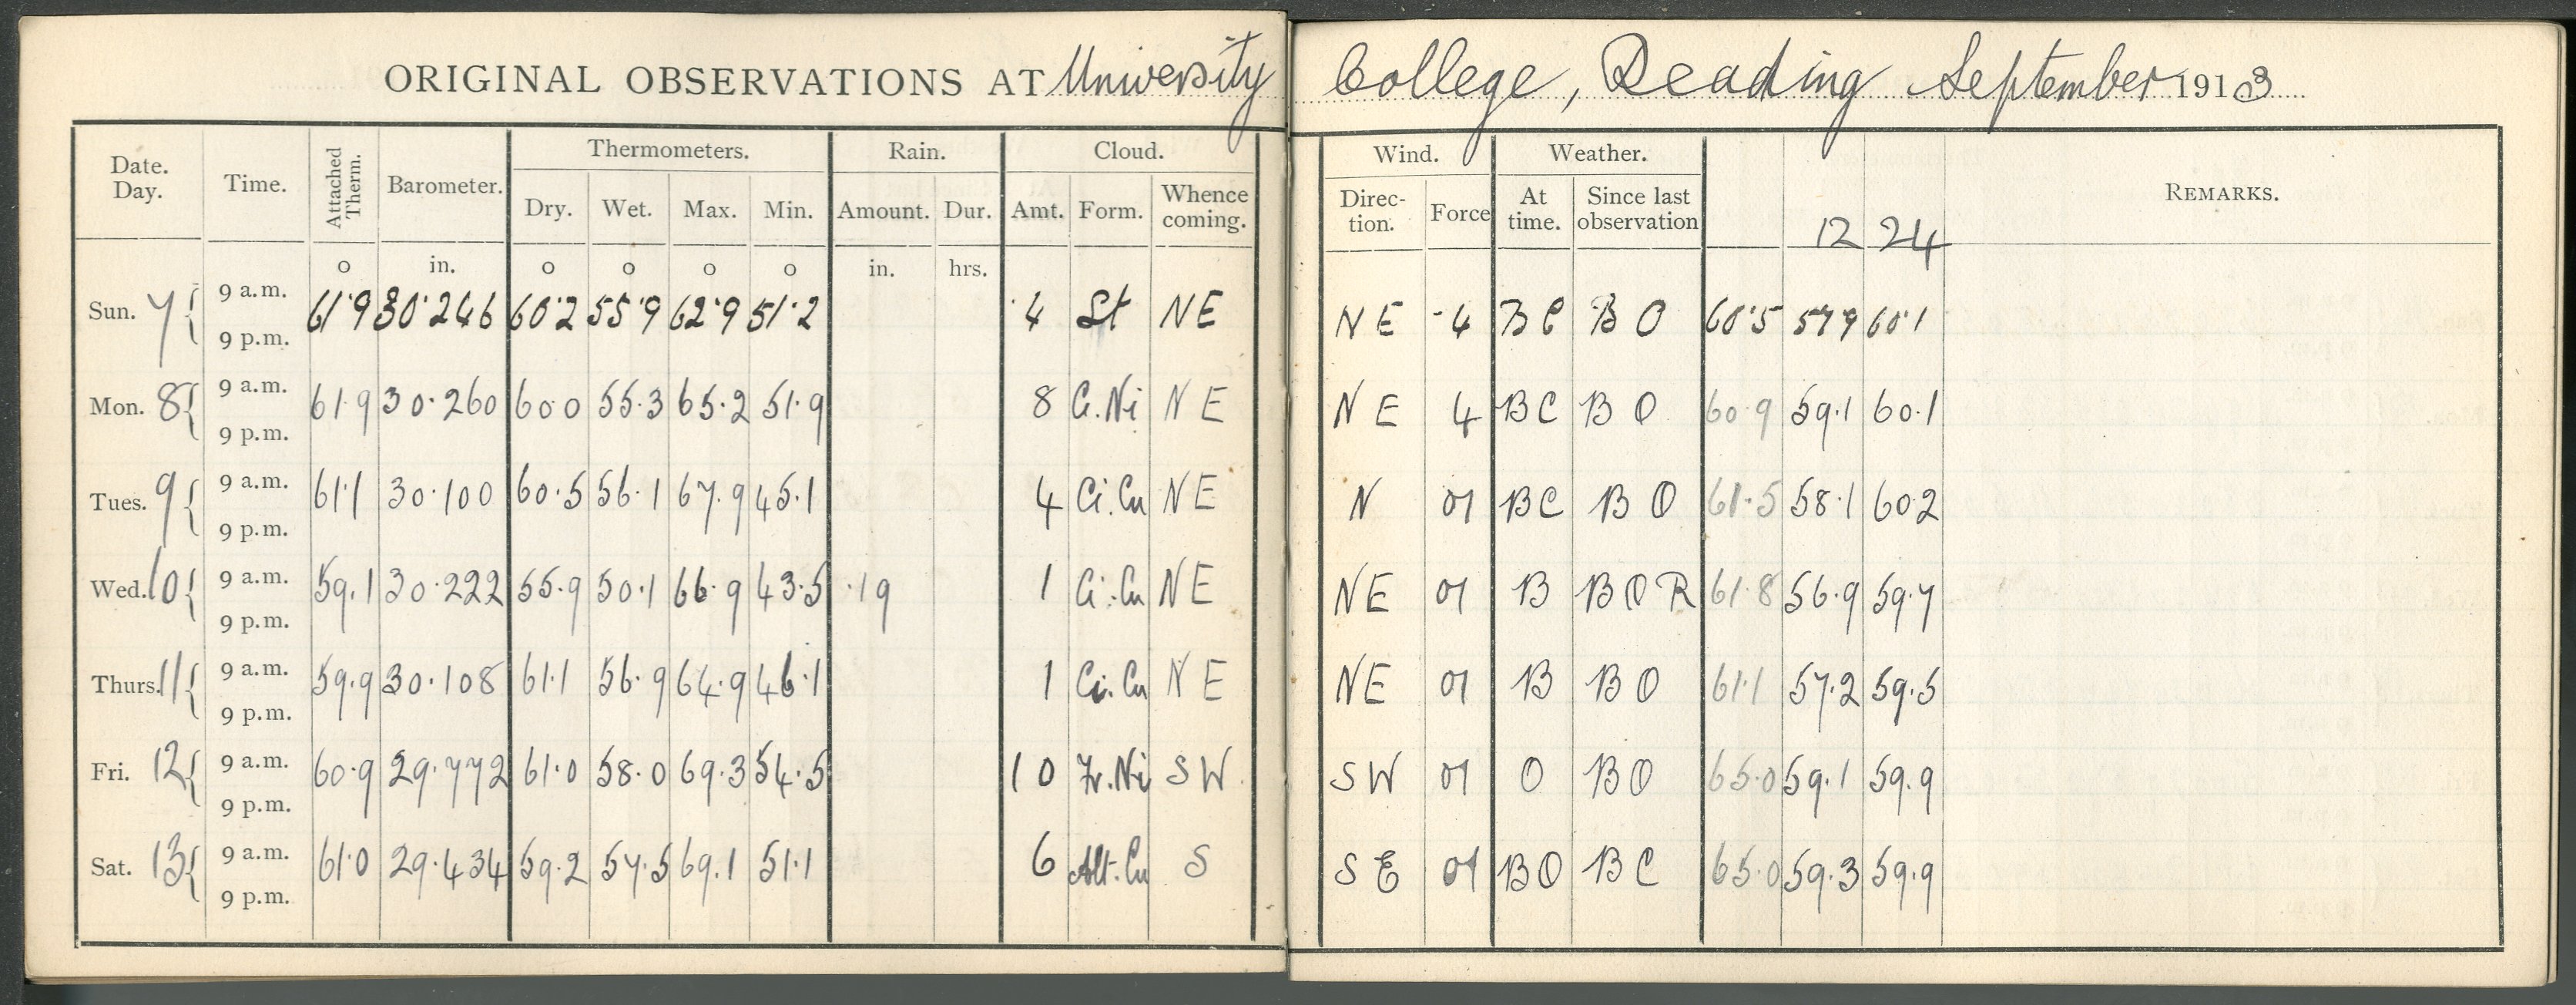 ORIGINAL OBSERVATIONS AT University College, Reading September 1913
Date. Day. Time. Attached Therm. Barometer. Thermometers. Rain. Cloud. Wind. Weather. REMARKS.
Dry. Wet. Max. Min. Amount. Dur. Amt. Form. Whence coming. Direc-tion. Force At time. Since last observation 12 24
o in. o o o o in. hrs.
Sun. 7 { 9 a.m. 61·9 30·246 60·2 55·9 62·9 51·2 4 St NE NE 4 BC BO 60·5 57 9 60·1
9 p.m.
Mon. 8 { 9 a.m. 61·9 30·260 60 0 55·3 65·2 51·9 8 Ci.Ni NE NE 4 BC BO 60·9 59·1 60·1
9 p.m.
Tues. 9 { 9 a.m. 61·1 30·100 60·5 56·1 67·9 45·1 4 Ci.Cu NE N 01 BC BO 61·5 58·1 60·2
9 p.m.
Wed. 10 { 9 a.m. 59·1 30·222 55·9 50·1 66·9 43·5 ·19 1 Ci.Cu NE NE 01 B BOR 61·8 56·9 59·7
9 p.m.
Thurs. 11 { 9 a.m. 59·9 30·108 61·1 56·9 64·9 46·1 1 Ci.Cu NE NE 01 B BO 61·1 57·2 59·5
9 p.m.
Fri. 12 { 9 a.m. 60·9 29·772 61·0 58·0 69·3 54·5 10 Fr.Ni SW SW 01 O BO 65·0 59·1 59·9
9 p.m.
Sat. 13 { 9 a.m. 61·0 29·434 59·2 57·5 69·1 51·1 6 Alt.Cu S SE 01 BO BC 65·0 59·3 59·9
9 p.m.